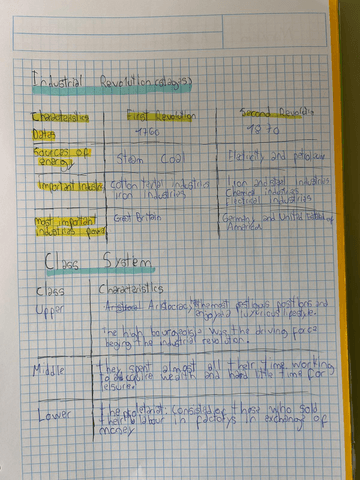 Industrial Revolution (stages)
Characteristics First Revolution Second Revolution
Dates 1760 1870
Sources of energy Steam Coal Eletricity and petroleum
Important industries Cotton textil industries
Iron industries
Iron and steel industries
Chemical industries
Electrical industries
most important
industries power
Great Britain
Germany and United States of
America
Class System
Class Characteristics
Upper Aristocracy, the most prestigous positions and
enjoyed luxurious lifestyle.
The high bourgeoisie was the driving force
begind the industrial revolution.
Middle they spent almost all their time working
to adquire wealth and had little time for
leisure.
Lower the proletariat: consisted of those who sold
their labour in factorys in exchange of
money